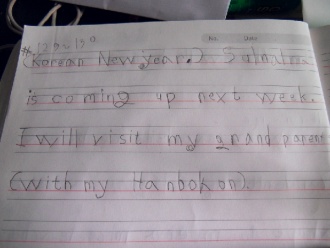 (Korean New year.)
is coming up next week.
I will visit my grand parent
(with my Hanbok on).